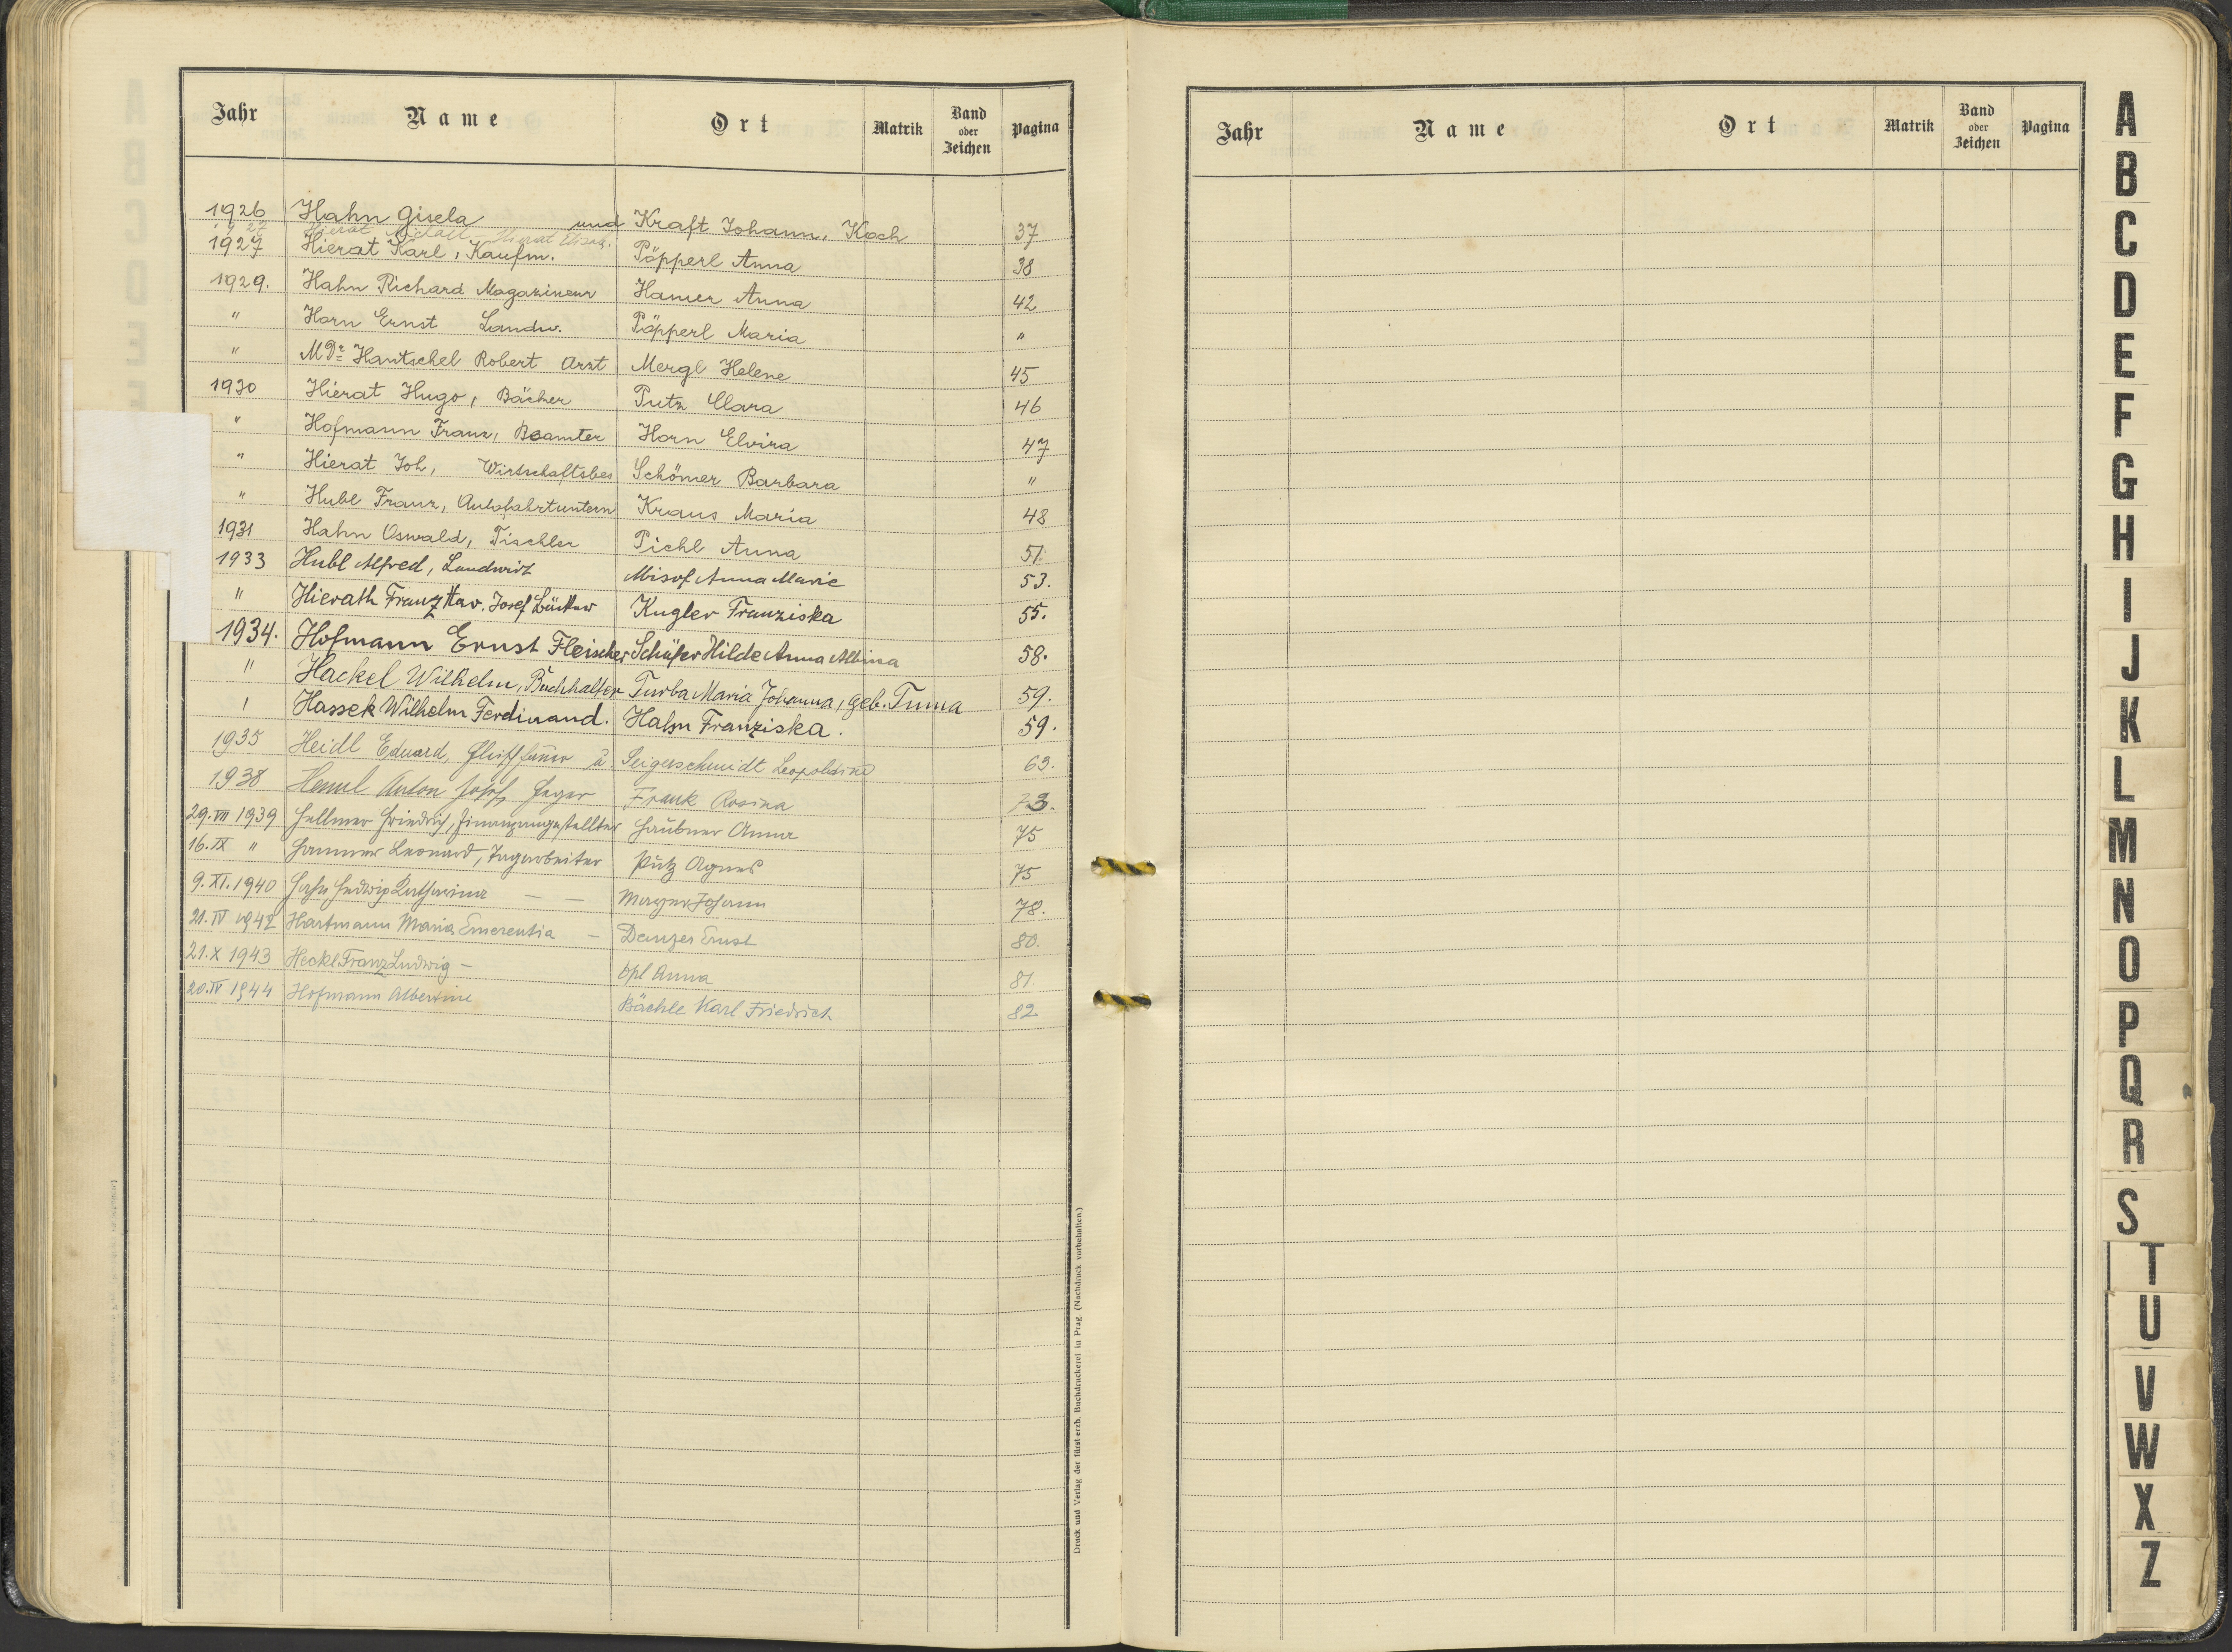 Jahr Name Ort Matrik Band oder Zeichen Pagina
1926 Hahn Gisela und Kraft Johann, Koch 37
1927 Hierat Hierat
1927 Hierat Karl, Kaufm. Pöpperl Anna 38
1929. Hahn Richard Magazineur Hamer Anna 42
" Horn Ernst Landw. Pöpperl Maria "
" MDr. Hantschel Robert Arzt Mergl Helene 45
1930 Hierat Hugo, Bäcker Putz Clara 46
" Hofmann Franz, Beamter Horn Elvira 47
" Hierat Joh, Wirtschaftsbes Schömer Barbara "
" Hubl Franz, Autofahrtuntern Kraus Maria 48
1931 Hahn Oswald, Tischler Pichl Anna 51
1933 Hubl Alfred, Landwirt Misof Anna Marie 53.
" Hierath Franz Xav. Josef Bäcker Kugler Franziska 55.
1934. Hofmann Ernst Fleischer Schäfer Hilde Anna Albina 58.
" Hackel Wilhelm, Buchhalter Turba Maria Johanna, geb. Tuma 59.
" Hassek Wilhelm Ferdinand. Hahn Franziska. 59.
1935 Heidl Eduard, u. Seigerschmidt Leopoldine 63.
1938 Heml Anton Josef, Heger Frank Rosina 73.
29.VII 1939 Hellmer Friedrich, Finanzangestellter Haubner Anna 75
16.IX " Hammer Leonard, Tagarbeiter Putz Agnes 75
9.XI.1940 Hahn Hedwig Katharina — — Mayer Johann 78.
21.IV 1942 Hartmann Maria Emerentia — Denzer Ernst 80.
21.X 1943 Heckl Franz Ludwig — Opl Anna 81
20.IV 1944 Hofmann Albertine Bächle Karl Friedrich 82
Druck und Verlag der fürst-erzb. Buchdruckerei in Prag. (Nachdruck vorbehalten.)
Jahr Name Ort Matrik Band oder Zeichen Pagina
A
B
C
D
E
F
G
H
I
J
K
L
M
N
O
P
Q
R
S
T
U
V
W
X
Z